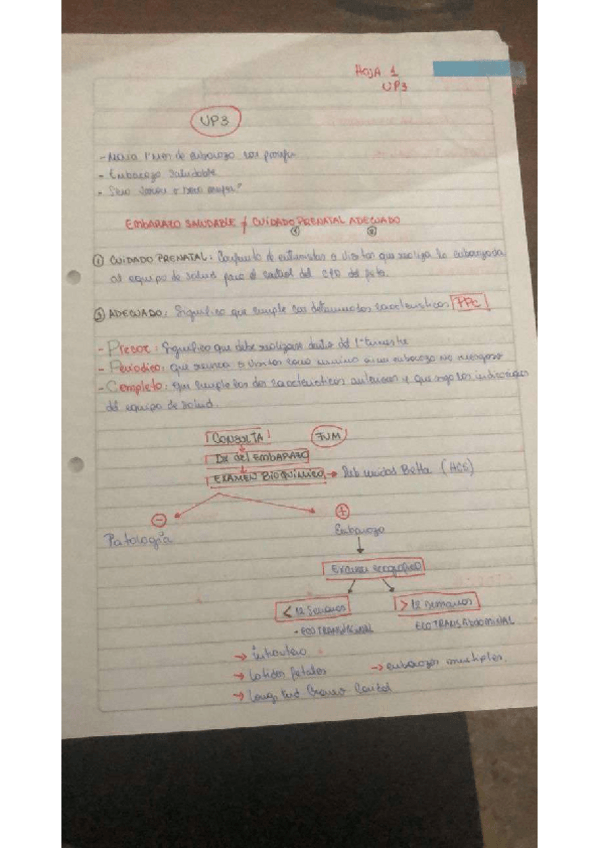 HOJA 1
UP3
UP3
- María 1° mes de embarazo
- Embarazo saludable
- Sexo varon o sexo mujer?
EMBARAZO SALUDABLE y CUIDADO PRENATAL ADECUADO
① ②
① CUIDADO PRENATAL: Conjunto de entrevistas o visitas que realiza la embarazada
al equipo de salud para el control del
② ADECUADO: Significa que cumple con determinadas características PPC
- Precoz: Significa que debe realizarse dentro del 1° trimestre
- Periódico: que 5 visitas como mínimo en un embarazo no riesgoso
- Completo: que cumple con dos características anteriores y que siga las indicaciones
del equipo de salud.
CONSULTA FUM
Dx del EMBARAZO
EXAMEN BIOQUÍMICO → Sub unidad Betta (HCG)
- +
Patología Embarazo
Examen ecográfico
< 12 semanas > 12 semanas
- ECO TRANSVAGINAL ECO TRANSABDOMINAL
→ Intrautero
→ Latidos fetales → embarazos multiples.
→ Longitud Craneo Caudal